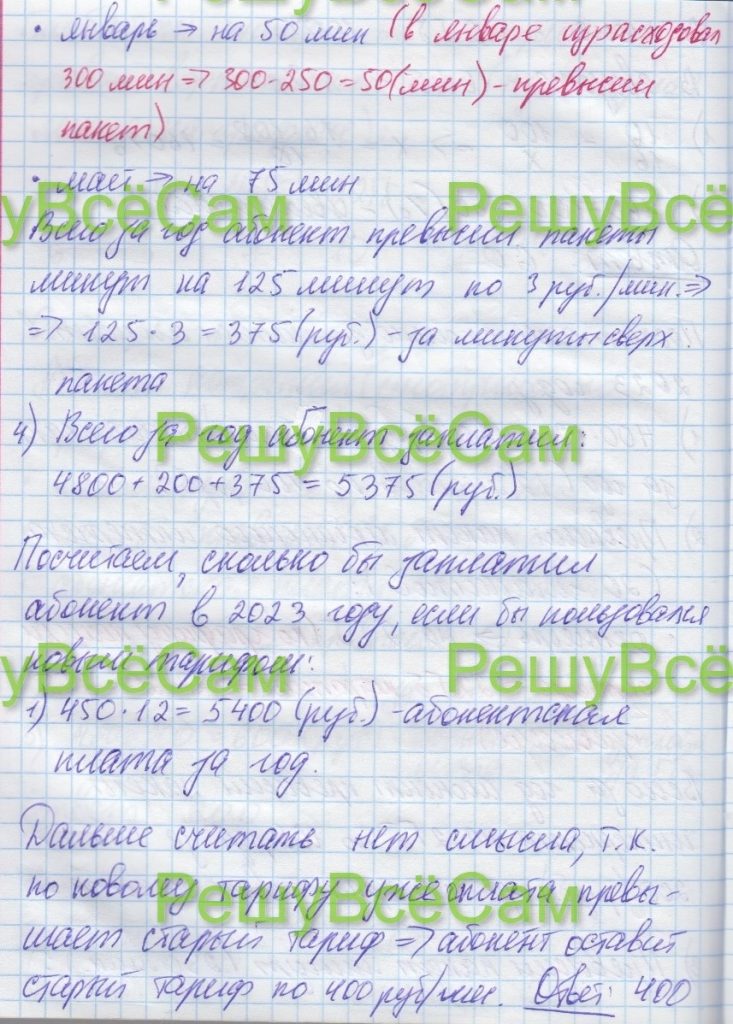 РешуВсёСам
• январь → на 50 мин (в январе израсходовал
300 мин => 300-250 = 50(мин) - превысил
пакет)
• май → на 75 мин
уВсёСам РешуВсё
Всего за год абонент превысил пакеты
минут на 125 минут по 3 руб./мин. =>
=> 125 · 3 = 375 (руб.) - за минуты сверх
пакета
РешуВсёСам
4) Всего за год абонент заплатил:
4800 + 200 + 375 = 5375 (руб.)
Посчитаем, сколько бы заплатил
абонент в 2023 году, если бы пользовался
новым тарифом:
уВсёСам РешуВсё
1) 450 · 12 = 5400 (руб.) - абонентская
плата за год.
Дальше считать нет смысла, т.к.
по новому тарифу уже оплата превы-
РешуВсёСам
шает старый тариф => абонент оставит
старый тариф по 400 руб/мес. Ответ: 400